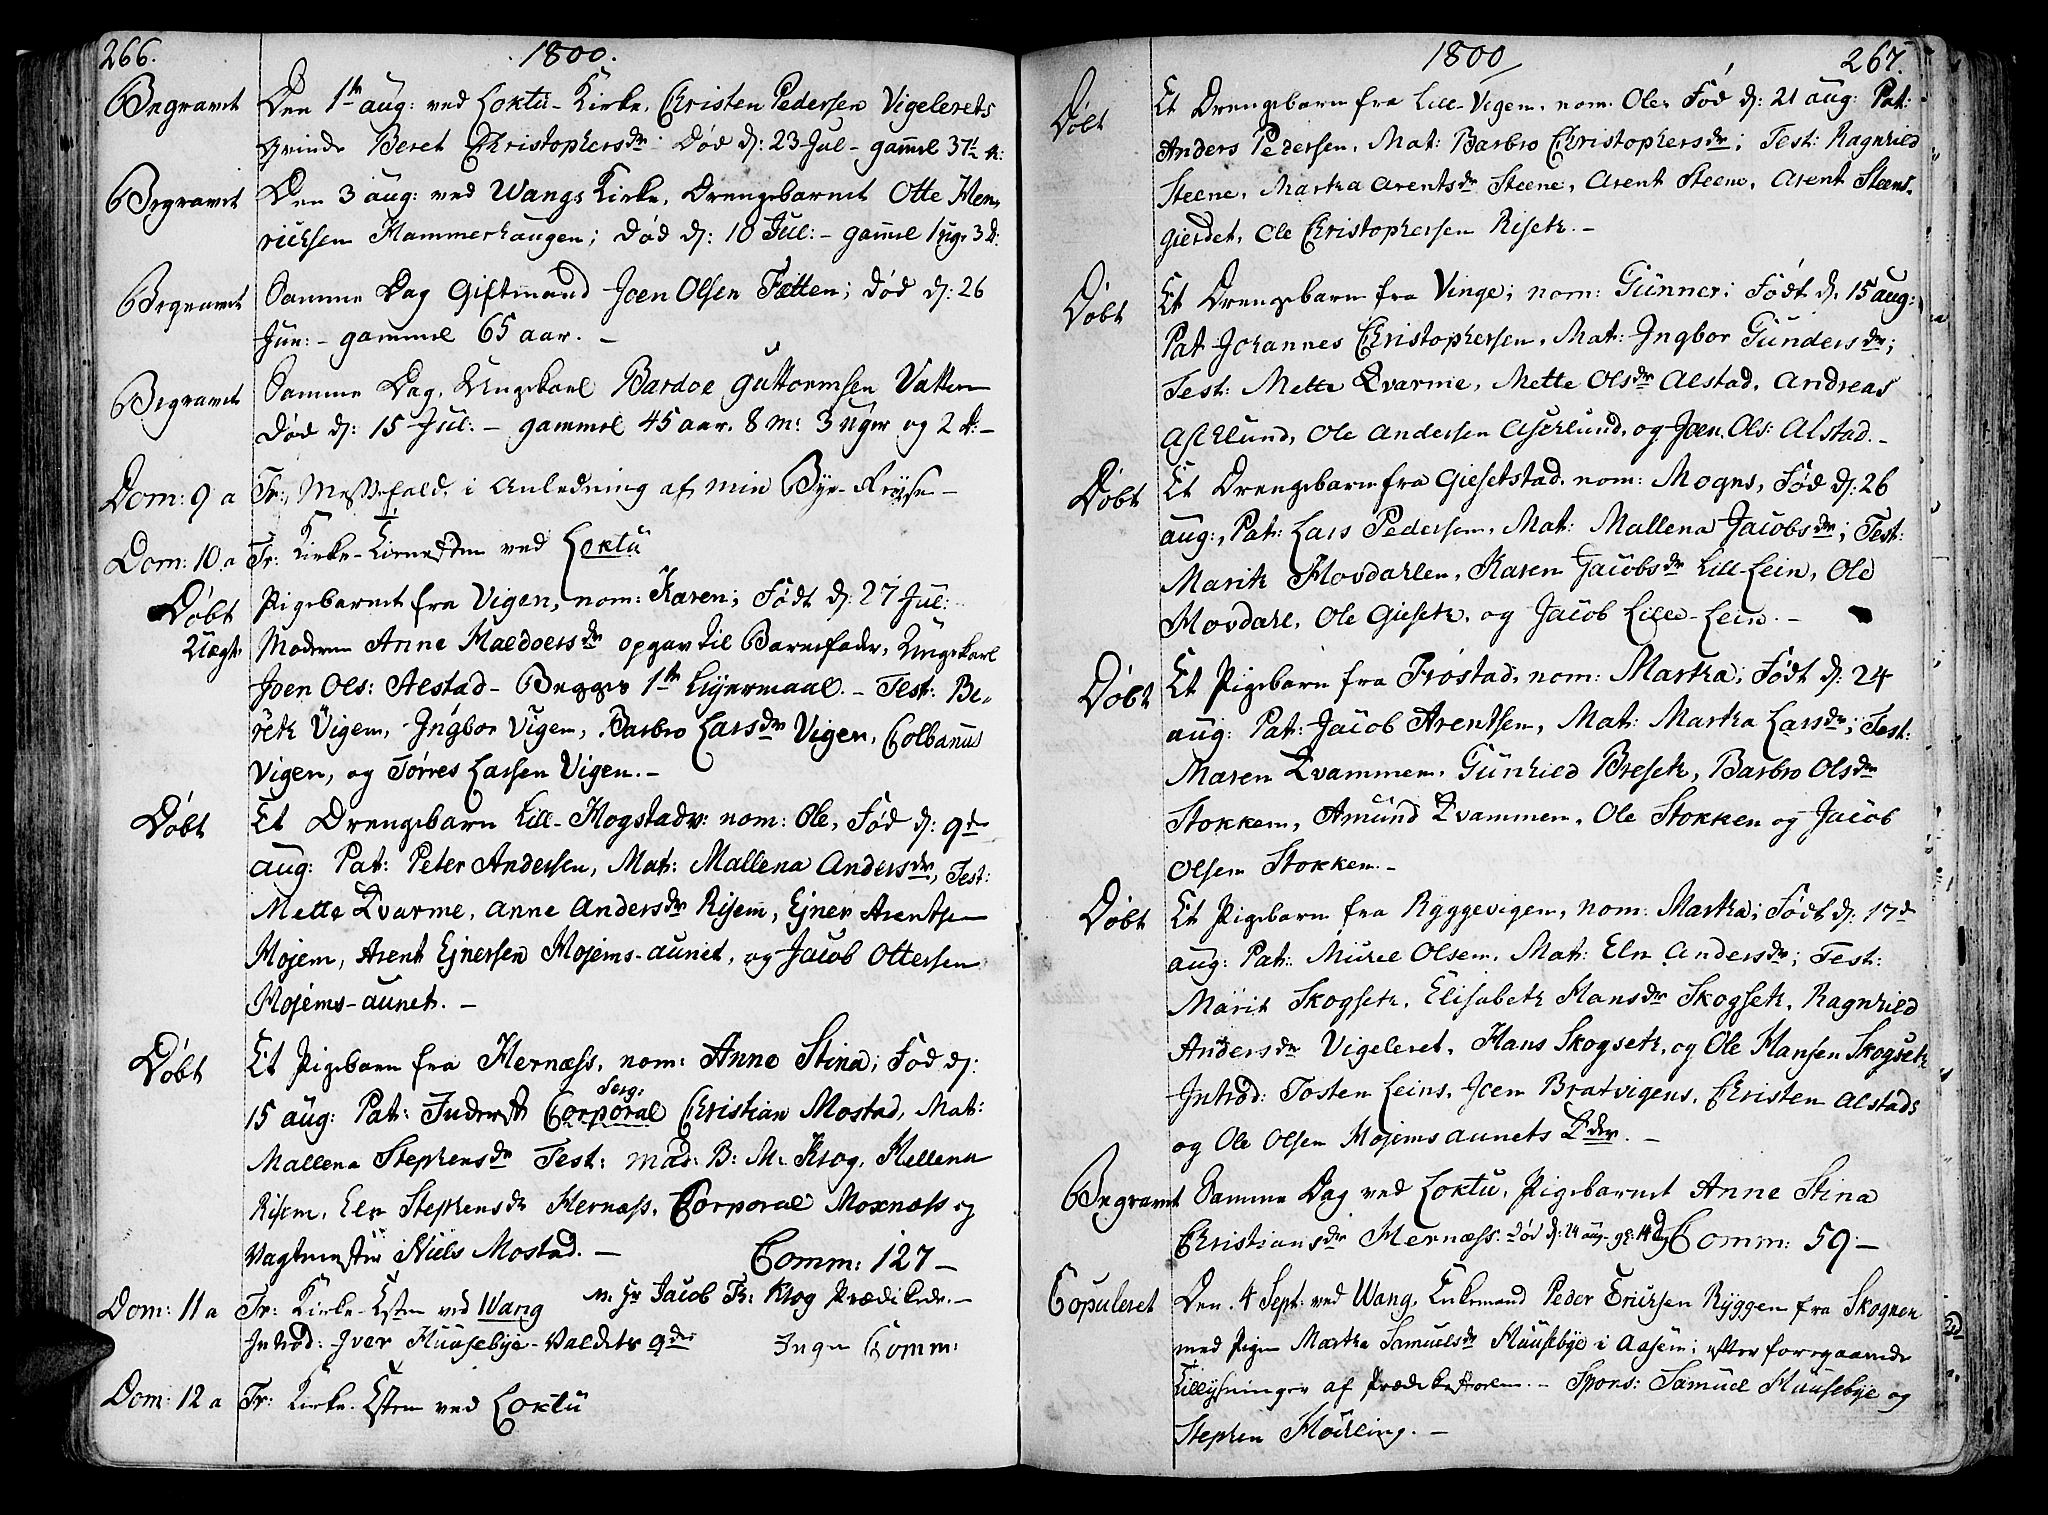 266.
1800.
Begravet Den 1te aug: ved Loktu-Kirke, Christen Pedersen Vigelerets
Qvinde Beret Christophersdr Død d: 23 Jul- gammel 37½ a:
Begravet Den 3 aug: ved Wangs Kirke, Drengebarnet Otte Hen,
richsen Hammerhaugen; død d: 10 Jul:- gammel 1 uge 3 d:
Begravet Samme Dag Giftmand Joen Olsen Fætten; død d: 26
Jun:- gammel 65 aar. -
Begravet Samme Dag, Ungekarl Bardoe Guttormsen Vatten
død d: 15 Jul:- gammel 45 aar, 8 m: 3 uger og 2 d:-
Dom: 9 a Tr:, Messefald, i Anledning af min Bye-Reyse-
Dom: 10 a Tr: Kirke-Tienesten ved Loktu
Døbt Pigebarnet fra Vigen, nom: Karen; Født d: 27 Jul:
Uægt. Moderen Anne Haldoersdr opgav til Barnefader, Ungekarl
Joen Ols: Alstad- Begges 1te Leyermaal.- Test: Be-
reth Vigen, Ingbor Vigen, Barbro Larsdr Vigen, Colbanus
Vigen, og Tørres Larsen Vigen.-
Døbt Et Drengebarn Lill-Hogstadv: nom: Ole, Fød d: 9de
aug: Pat: Peter Andersen, Mat: Mallena Andersdr, Test:
Mette Qvarme, Anne Andersdr Risem, Ejner Arentsen
Mojem, Arent Ejnersen Mojems-aunet, og Jacob Ottersen
Mojems-aunet. -
Døbt Et Pigebarn fra Hernæss, nom: Anne Stina; Fød d:
15 aug: Pat: Inderst Corporal Serg: Christian Mostad, Mat:
Mallena Stephensdr Test: Mad: B: M: Krog, Hellena
Risem, Eln Stephensdr Hernæss, Corporal Moxnæss og
Vagtmester Niels Mostad. - Comm: 127-
Dom: 11 a Tr: Kirke-Tsten ved Wang m: Hr Jacob Fr: Krog Prædikede.-
Introd: Iver Huusebye-Valdets qde: Ingen Comm:
Dom: 12 a Tr: Kirke-Tsten ved Loktu
1800
267.
Døbt Et Drengebarn fra Lill-Vigen, nom: Ole, Fød d: 21 aug: Pat:
Anders Pedersen, Mat: Barbro Christophersdr; Test: Ragnhild
Steene, Martha Arentsdr Steene, Arent Steene, Arent Steens-
gierdet, Ole Christophersen Riseth.-
Døbt Et Drengebarn fra Vinge; nom: Gunner; Født d. 15 aug:
Pat Johannes Christophersen, Mat: Ingbor Gundersdr;
Test: Mette Qvarme, Mette Olsdr Alstad, Andreas
Aselund, Ole Andersen Aselund, og Joen Ols: Alstad.-
Døbt Et Drengebarn fra Giesetstad, nom: Mogns, Fød d: 26
aug:, Pat: Lars Pedersen, Mat: Mallena Jacobsdr; Test:
Marith Hovdahlen, Karen Jacobsdr Lill-Lein, Ole
Hovdahl, Ole Gieseth, og Jacob Lille-Lein. -
Døbt Et Pigebarn fra Frøstad, nom: Martha; Født d: 24
aug: Pat: Jacob Arentsen, Mat: Martha Larsdr; Test:
Maren Qvammen, Gunhild Breseth, Barbro Olsdr
Stokken, Amund Qvammen, Ole Stokken og Jacob
Olsen Stokken.-
Døbt Et Pigebarn fra Ryggevigen, nom: Martha; Født d: 17de
aug: Pat: Michel Olsen, Mat: Eln Andersdr; Test:
Marit Skogseth, Elisabeth Hansdr Skogseth, Ragnhild
Andersdr Vigeleret, Hans Skogseth, og Ole Hansen Skogseth
Introd: Tosten Leins, Joen Bratvigens, Christen Alstads
og Ole Olsen Mojemsaunets Qder. -
Begravet Samme Dag ved Loktu, Pigebarnet Anne Stina
Christiansdr Hernæss. død d: 24 aug- gl: 14 D Comm: 59-
Copuleret Den 4 Sept: ved Wang, Enkemand Peder Erichsen Ryggen fra Skognen
med Pigen Martha Samuelsdr Huusebye i Aasen; efter foregaaende
Tillysninger af Prædikestolen. - Spons: Samuel Huusebye og
Stephen Høiling. -